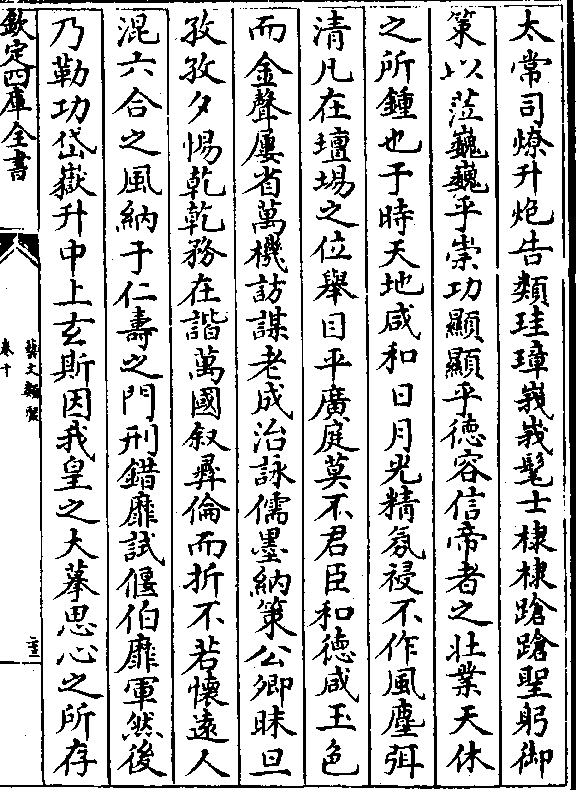 太常司燎升炮告類珪璋峩峩髦士棣棣蹌蹌聖躬御
策以蒞巍巍乎崇功顯顯乎徳容信帝者之壯業天休
之所鍾也于時天地咸和日月光精氛祲不作風塵弭
清凡在壇場之位舉目乎廣庭莫不君臣和徳咸玉色
而金聲屢省萬機訪謀老成治詠儒墨納策公卿昧旦
孜孜夕惕乾乾務在諧萬國叙彞倫而折不若懷遠人
混六合之風納于仁壽之門刑錯靡試偃伯靡軍然後
乃勒功岱嶽升中上玄斯因我皇之大摹思心之所存
欽定四庫全書
藝文類聚
卷十
二十三